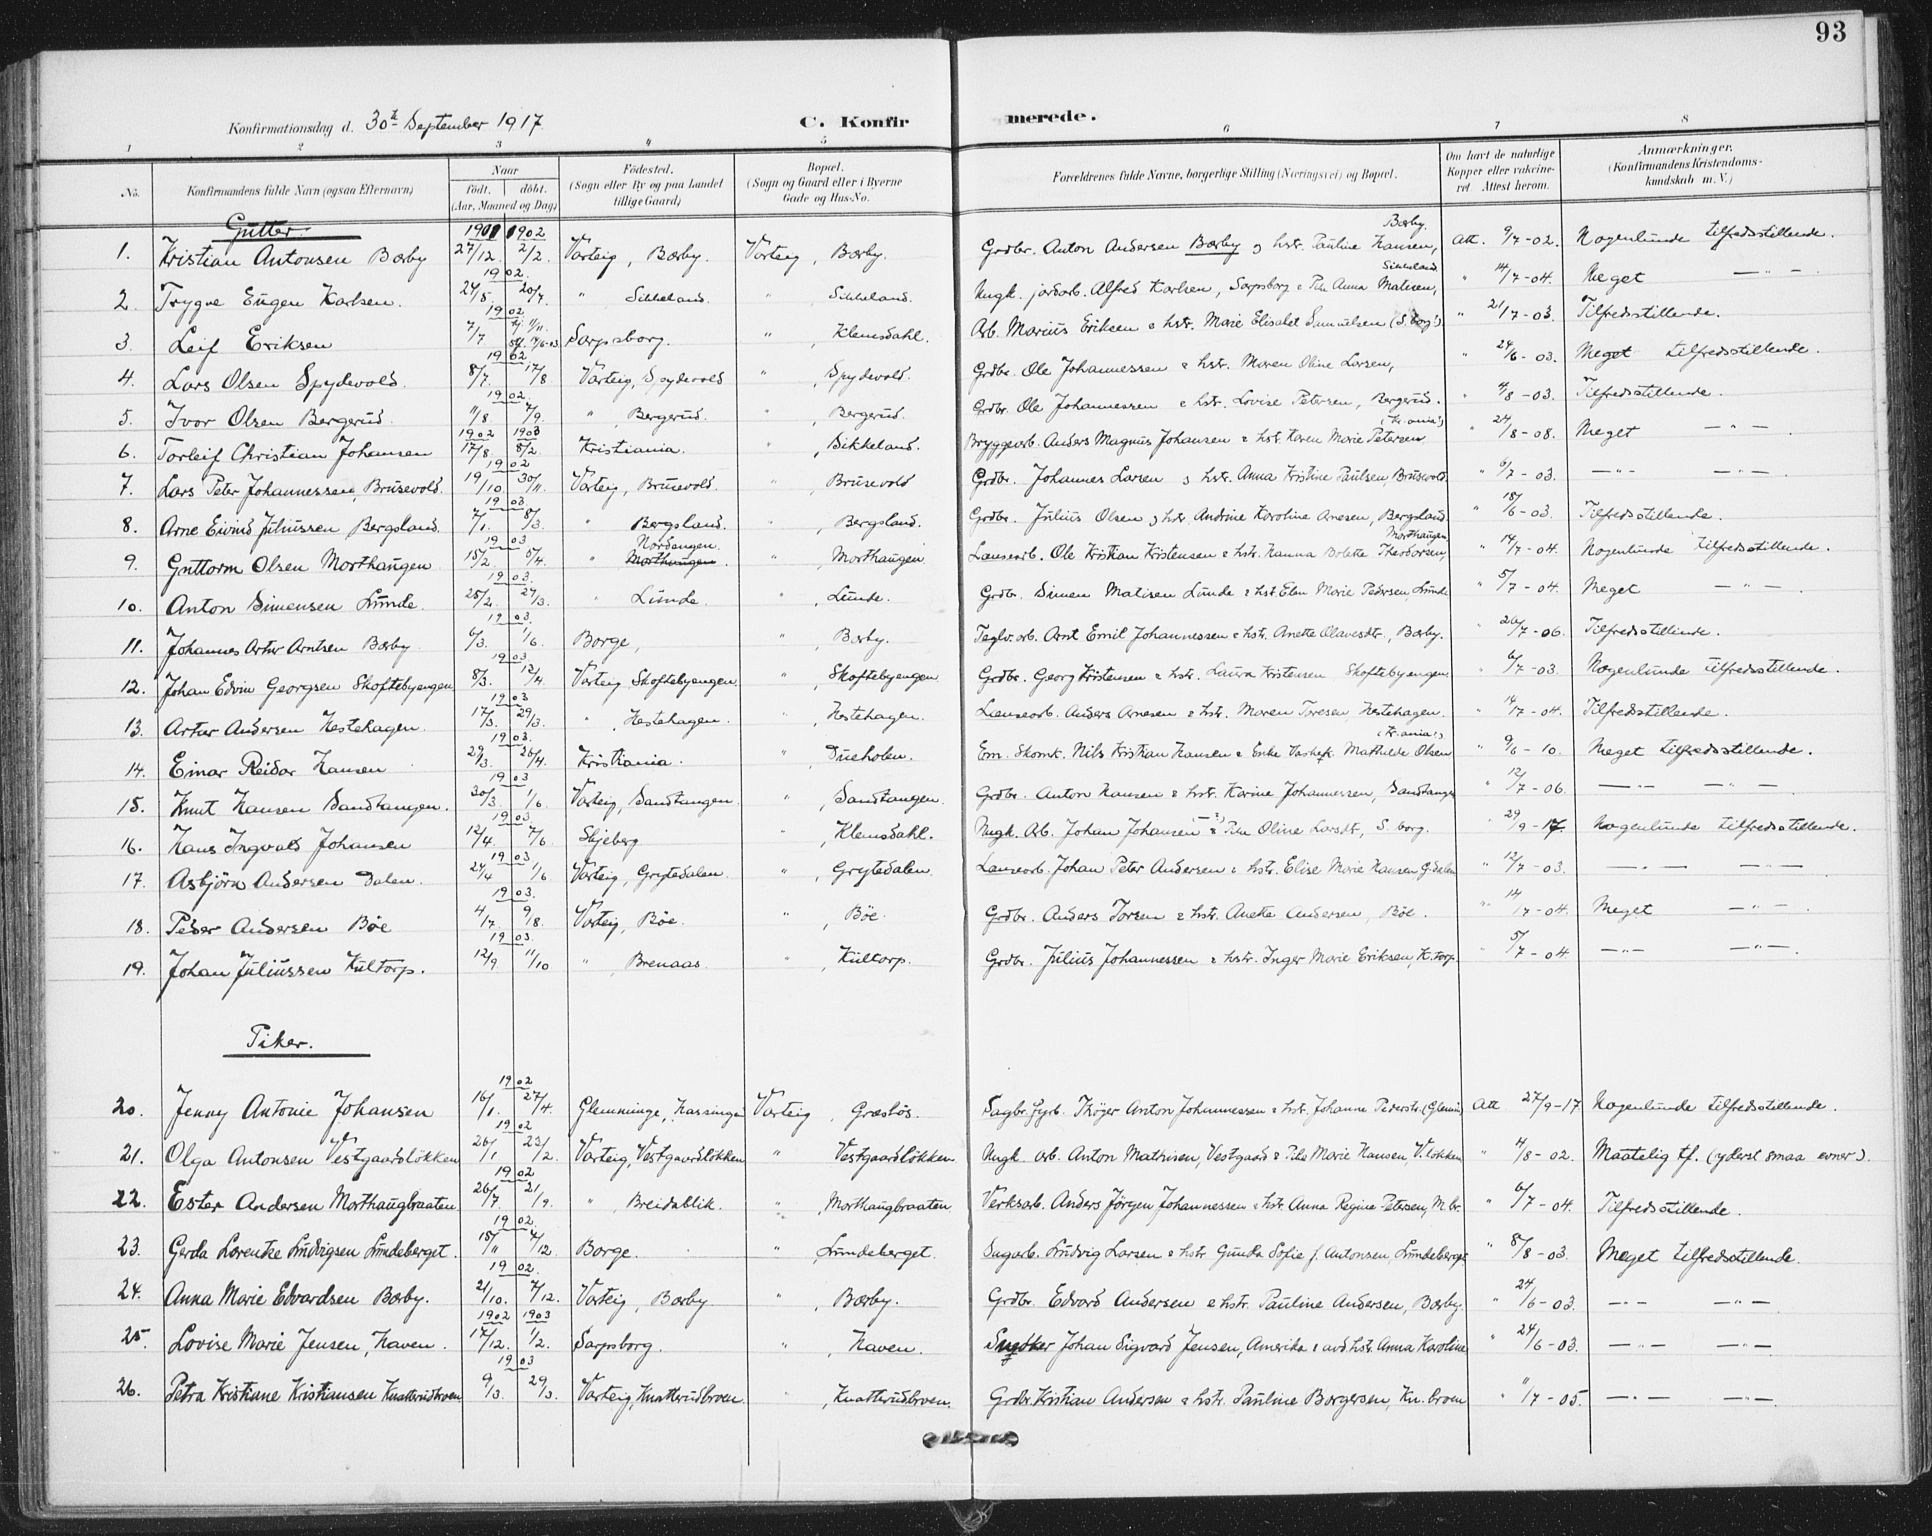 93
Konfirmationsdag d. 30te September 1917.
C. Konfirmerede.
1 2 3 4 5 6 7 8
No.
Konfirmandens fulde Navn (ogsaa Efternavn)
Naar
födt. döbt.
(Aar, Maaned og Dag)
Födested.
(Sogn eller By og paa Landet
tillige Gaard)
Bopæl.
(Sogn og Gaard eller i Byerne
Gade og Hus-No.
Forældrenes fulde Navne, borgerlige Stilling (Næringsvei) og Bopæl.
Om havt de naturlige
Kopper eller vakcine-
ret Attest herom.
Anmærkninger.
(Konfirmandens Kristendoms-
kundskab m. V.)
Gutter.
1. Kristian Antonsen Bærby 1901 27/12. 1902 2/2. Varteig, Bærby. Varteig, Bærby. Grdbr. Anton Andersen Bærby og hstr. Pauline Hansen, Bærby. Att. 9/7-02. Nogenlunde tilfredsstillende.
2. Trygve Eugen Karlsen. 1902. 24/5. 20/7. " Sikkeland. " Sikkeland. Ungk. jordarb. Alfred Karlsen, Sarpsborg & Pike Anna Matisen, Sikkeland. " 14/7-04. Meget —"—
3. Leif Eriksen 1902. 7/7 Sarpsborg. " , Klemsdahl. Arb. Marius Eriksen & hstr. Marie Elisabet Samuelsen (S.borg). " 21/7-03. Tilfredsstillende.
4. Lars Olsen Spydevold. 1902 8/7. 17/8 Varteig, Spydevold " , Spydevold. Grdbr. Ole Johannessen & hstr. Maren Oline Larsen, " 24/6-03. Meget tilfredsstillende.
5. Ivar Olsen Bergerud. 1902. 11/8. 7/9. " , Bergerud. " , Bergerud. Grdbr. Ole Johannessen & hstr. Lovise Petersen, Bergerud. " 4/8-03. Tilfredsstillende.
6. Torleif Christian Johansen 1902 17/8. 1903 8/2. Kristiania. " , Sikkeland. Bryggearb. Anders Magnus Johansen & hst. Karen Marie Petersen (Kr.ania) " 24/8-08. Meget —"—
7. Lars Peter Johannessen, Brusevold. 1902 19/10. 30/11. Varteig, Brusevold. " , Brusevold Grdbr. Johannes Larsen og hstr. Anna Kristine Paulsen, Brusevold. " 6/7-03. —"— —"—
8. Arne Eivind Juliussen Bergsland. 1903. 7/1. 8/3. " Bergsland. " , Bergsland. Grdbr. Julius Olsen og hstr. Andrine Karoline Arnesen, Bergsland. " 18/6-03. Tilfredsstillende.
9. Guttorm Olsen Morthaugen 1903 15/2. 5/4. " Nordengen. Morthaugen " , Morthaugen Lauseorb. Ole Kristian Kristensen & hstr. Hanna Bolette Theodorsen, Morthaugen " 14/7-04. Nogenlunde tilfredsstillende.
10. Anton Simensen Lunde. 1903. 25/2. 27/3. " Lunde. " , Lunde. Grdbr. Simen Matisen Lunde & hst. Elen Marie Pedersen, Lunde " 5/7-04. Meget —"—
11. Johannes Artur Arntsen Bærby 1903. 6/3. 1/6. Borge, " , Bærby. Teglv.arb. Arnt Emil Johannessen & hstr. Anette Olavesdtr., Bærby. " 26/7-06. Tilfredsstillende.
12. Johan Edvin Georgsen Skoftebyengen 1903 8/3. 12/4. Varteig Skoftebyengen. " , Skoftebyengen. Grdbr. Georg Kristensen & hstr. Laura Kristensen Skoftebyengen. " 6/7-03. Nogenlunde tilfredsstillende.
13. Artur Andersen Hestehagen. 1903 17/3. 29/3. " , Hestehagen. " , Hestehagen. Lauseorb. Anders Arnesen & hstr. Maren Toresen, Hestehagen. " 14/7-04. Tilfredsstillende.
14. Einar Reidar Hansen 1903. 29/3. 26/4. Kristiania. " , Dueholen. Em. Skomk. Nils Kristian Hansen & Enke Vaskek. Mathilde Olsen (Kr.ania) " 9/6-10. Meget tilfredsstillende.
15. Knut Hansen Sandtangen. 1903 30/3. 1/6. Varteig, Sandtangen. " , Sandtangen. Grdbr. Anton Hansen & hstr. Karine Johannessen, Sandtangen " 12/7-06. —"— —"—
16. Hans Ingvald Johansen 1903 12/4. 7/6. Skjeberg " , Klemsdahl. Ungk. Arb. Johan Johansen & Pike Oline Larsdt, S.borg. " 29/9-17. Nogenlunde tilfredsstillende.
17. Asbjörn Andersen Dalen. 1903 24/4 1/6 Varteig, Grytedalen. " , Grytedalen. Lauseorb. Johan Peter Andersen & hstr. Elise Marie Hansen G.dalen " 12/7-03. —"— —"—
18. Peder Andersen Böe 1903. 4/7. 9/8. Varteig, Böe. " , Böe. Grdbr. Anders Torsen & hstr. Anette Andersen, Böe. " 14/7-04. Meget —"—
19. Johan Juliussen Kultorp. 1903. 12/9. 11/10 " , Brenaas. " , Kultorp. Grdbr. Julius Johannessen & hstr. Inger Marie Eriksen, K.torp. " 5/7-04 —"— —"—
Piker.
20. Jenny Antonie Johansen 1902 16/1. 27/4. Glemminge, Kassingen Varteig, Græslös. Sagbr.fyrb. Thöger Anton Johannessen & hst. Johanne Pedersdtr. (Glemm.) Att 27/9-17. Nogenlunde tilfredsstillende.
21. Olga Antonsen Vestgaardslökken 1902 26/1 23/2. Varteig, Vestgaardslökken " Vestgaardslökken. Ungk. arb. Anton Mathisen, Vestgaard & Pike Marie Hansen, V.lökken " 4/8-02. Maatelig tf. (yderst smaa evner).
22. Ester Andersen Morthaugbraaten 1902 26/7. 21/9. " , Breidablik. " , Morthaugbraaten Verksarb. Anders Jörgen Johannessen & hst. Anna Regine Petersen, M.br. " 6/7-04. Tilfredsstillende.
23. Gerda Lorentze Ludvigsen Lundeberget. 1902. 15/11 7/12. Borge. " , Lundeberget. Sagarb. Ludvig Larsen & hstr Gunda Sofie f. Antonsen, Lundeberget " 8/8-03. Meget tilfredsstillende.
24. Anna Marie Edvardsen Bærby. 1902. 21/10. 7/12. Varteig, Bærby " , Bærby. Grdbr. Edvard Andersen & hstr. Pauline Andersen, Bærby. " 24/6-03. —"— —"—
25. Lovise Marie Jensen, Haven. 1902 17/12. 1903 1/2. Sarpsborg. " , Haven. Snedker Johan Sigvard Jensen, Amerika & avd. hst. Anna Karoline " 24/6-03. —"— —"—
26. Petra Kristiane Kristiansen Knatterudbroen 1903 9/3. 29/3. Varteig, Knatterudbroen. " , Knatterudbroen. Grdbr. Kristian Andersen & hstr. Pauline Borgersen, Kn.broen " 11/7-05. —"— —"—